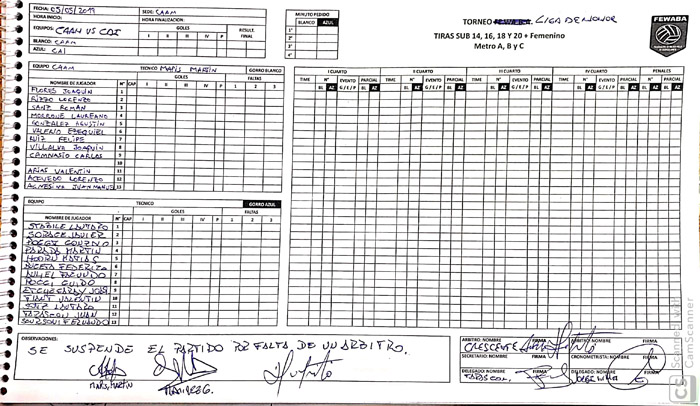 FECHA: 05/05/2019 SEDE: CAAM
HORA INICIO: HORA FINALIZACION:
EQUIPOS: CAAM VS CAI GOLES RESULT. FINAL
I II III IV P
BLANCO: CAAM
AZUL: CAI
MINUTO PEDIDO
BLANCO AZUL
1°
2°
3°
4°
TORNEO LIGA DE HONOR
TIRAS SUB 14, 16, 18 Y 20 + Femenino
Metro A, B y C
FEWABA
EQUIPO CAAM TECNICO MARIS MARTIN GORRO BLANCO
NOMBRE DE JUGADOR N° CAP GOLES FALTAS
I II III IV P 1 2 3
FLORES JOAQUIN 1
RIZZO LORENZO 2
SANZ ROMAN 3
MORRONE LAUREANO 4
GONZALEZ AGUSTIN 5
VALERIO EZEQUIEL 6
RUIZ FELIPE 7
VILLALVA JOAQUIN 8
CAMNASIO CARLOS 9
10
ARIAS VALENTIN 11
ACEVEDO LORENZO 12
JUAN MANUEL 13
EQUIPO TECNICO GORRO AZUL
NOMBRE DE JUGADOR N° CAP GOLES FALTAS
I II III IV P 1 2 3
STABILE LAUTARO 1
SORACE JAVIER 2
POGGI GONZALO 3
PARADA MARTIN 4
MATIAS 5
FEDERICO 6
FACUNDO 7
GUIDO 8
ETCHEGARAY JOSE 9
VALENTIN 10
LAUTARO 11
TARASCON JUAN 12
FERNANDO 13
I CUARTO II CUARTO III CUARTO IV CUARTO PENALES
TIME N° EVENTO PARCIAL TIME N° EVENTO PARCIAL TIME N° EVENTO PARCIAL TIME N° EVENTO PARCIAL N° EVENTO PARCIAL
BL AZ G/E/P BL AZ BL AZ G/E/P BL AZ BL AZ G/E/P BL AZ BL AZ G/E/P BL AZ BL AZ G/E/P BL AZ
OBSERVACIONES:
SE SUSPENDE EL PARTIDO POR FALTA DE UN ARBITRO.
MARIS, MARTIN
RAMIREZ G.
ARBITRO: NOMBRE FIRMA ARBITRO: NOMBRE FIRMA
CRESCENTE
SECRETARIO: NOMBRE FIRMA CRONOMETRISTA: NOMBRE FIRMA
DELEGADO: NOMBRE FIRMA DELEGADO: NOMBRE FIRMA
TARASCON
CS Scanned with CamScanner